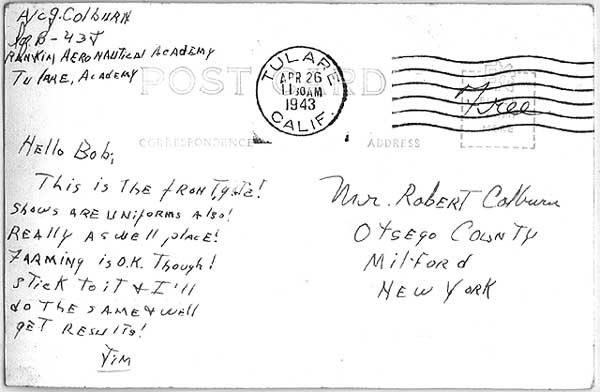 A/c J. Colburn
Sq B-43J
Rankin Aeronautical Academy
Tulare, Academy
POST CARD
TULARE
APR 26
11 30 AM
1943
CALIF.
Free
CORRESPONDENCE
ADDRESS
HERE
Hello Bob,
This is the front gate!
Shows are uniforms also!
Really a swell place!
Farming is O.K. Though!
Stick to it & I'll
do the same & we'll
get results!
Jim
Mr. Robert Colburn
Otsego County
Milford
New York